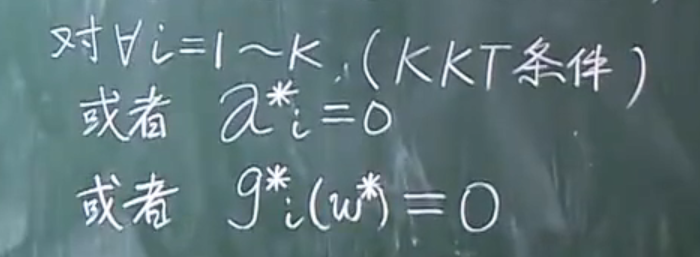 对∀i=1~K,(KKT条件)
或者 α*i=0
或者 g*i(w*)=0